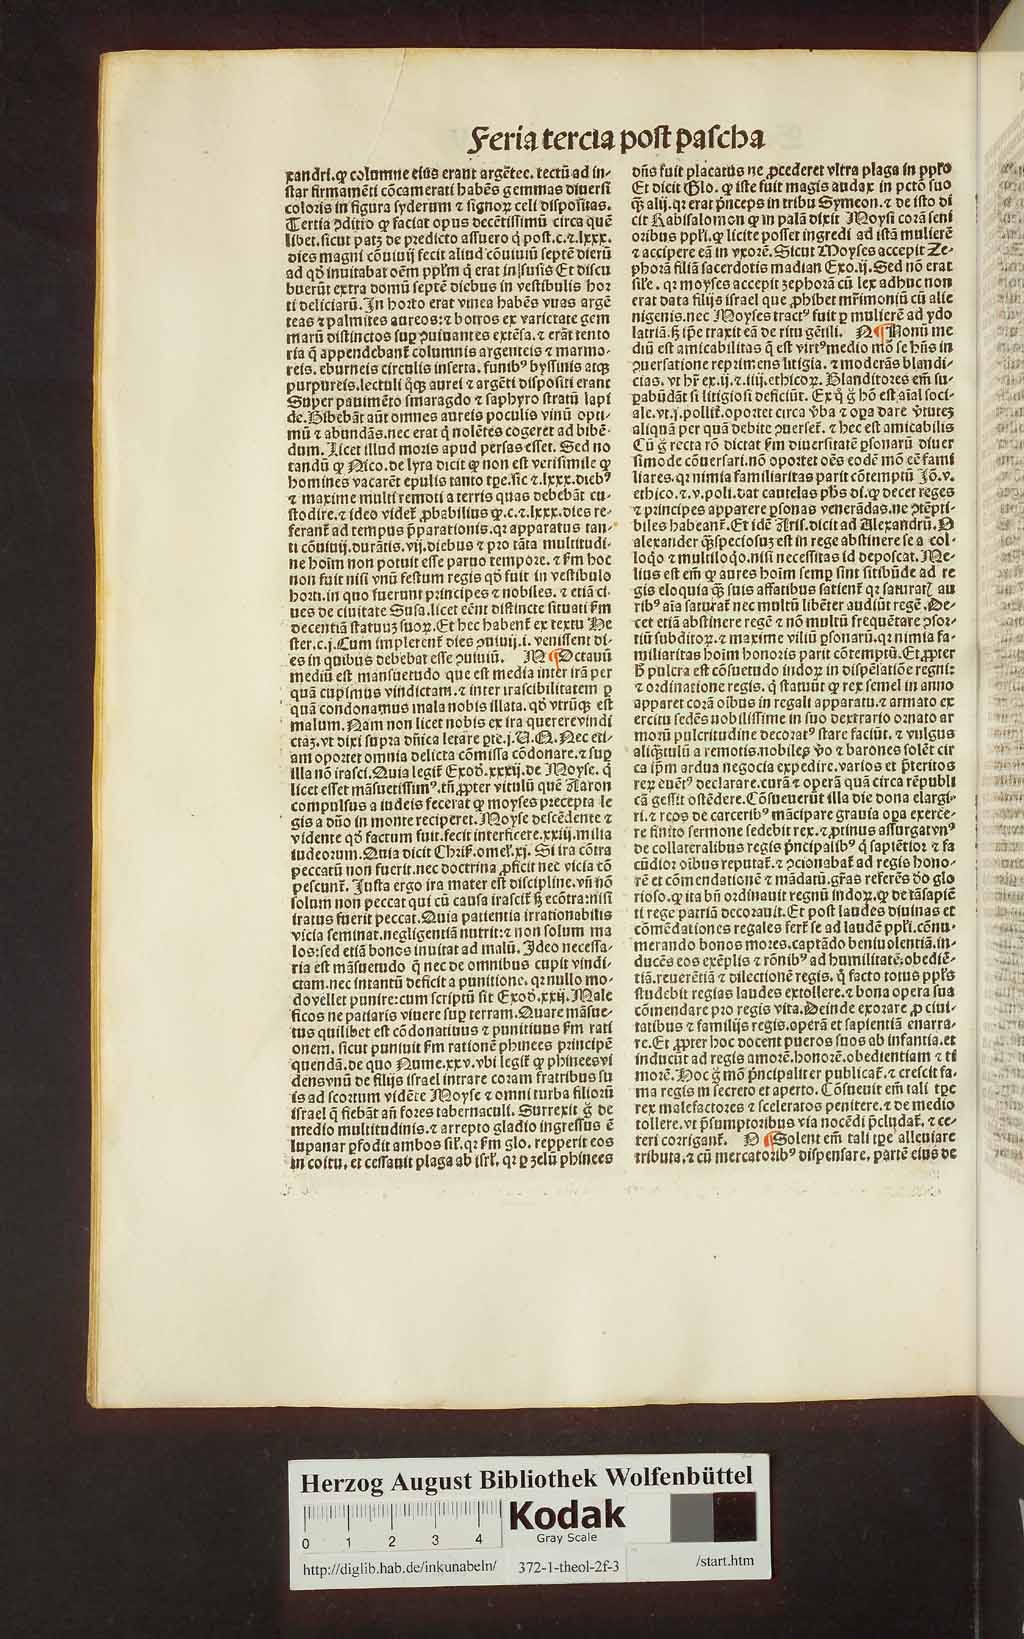 Feria tercia post pascha
xandri. ꝙ columne eius erant argētee. tectū ad in-
star firmamēti cōcamerati habēs gemmas diuersi
coloris in figura syderum ⁊ signoꝝ celi dispositas.
Tertia ꝯditio ꝙ faciat opus decētissimū circa quē
libet. sicut patꝫ de predicto assuero q̇ post .c. ⁊ .lxxx.
dies magni cōuiuij fecit aliud cōuiuiū septē dierū
ad qđ inuitabat oēm pplm̄ q̇ erat in susis Et discu
buerūt extra domū septē diebus in vestibulis hor
ti deliciarū. In horto erat vinea habēs vuas argē
teas ⁊ palmites aureos: ⁊ botros ex varietate gem
marū distinctos suꝑ ꝯuiuantes extēsa. ⁊ erāt tento
ria q̄ appendebanť columnis argenteis ⁊ marmo-
reis. eburneis circulis inserta. funibꝰ byssinis atqꝫ
purpureis. lectuli q̄qꝫ aurei ⁊ argēti dispositi erant
Super pauimēto smaragdo ⁊ saphyro stratū lapi
de. Bibebāt aūt omnes aureis poculis vinū opti-
mū ⁊ abundās. nec erat q̇ nolētes cogeret ad bibē-
dum. Licet illud moris apud persas esset. Sed no
tandū ꝙ Nico. de lyra dicit ꝙ non est verisimile ꝙ
homines vacarēt epulis tanto tꝑe. sic ⁊ .lxxx. diebꝰ
⁊ maxime multi remoti a terris quas debebāt cu-
stodire. ⁊ ideo videť ꝓbabilius ꝙ .c. ⁊ .lxxx. dies re-
feranť ad tempus p̄parationis. qꝛ apparatus tan-
ti cōuiuij. durātis .vij. diebus ⁊ pro tāta multitudi-
ne hoīm non potuit esse paruo tempore. ⁊ ẜm hoc
non fuit nisi vnū festum regis qđ fuit in vestibulo
horti. in quo fuerunt principes ⁊ nobiles. ⁊ etiā ci-
ues de ciuitate Susa. licet eēnt distincte situati ẜm
decentiā statuuꝫ suoꝝ. Et hec habenť ex textu He
ster .c.j. Cum implerenť dies ꝯuiuij .i. venissent di-
es in quibus debebat esse ꝯuiuiū. M ¶ Octauū
mediū est mansuetudo que est media inter irā per
quā cupimus vindictam. ⁊ inter irascibilitatem ꝑ
quā condonamus mala nobis illata. qđ vtrūqꝫ est
malum. Nam non licet nobis ex ira querere vindi
ctaꝫ. vt dixi supra dn̄ica letare ꝑte .j. U. Q. Nec eti-
am oportet omnia delicta cōmissa cōdonare. ⁊ suꝑ
illa nō irasci. Quia legiť Exođ. xxxij. de Moyse. q̇
licet esset māsuetissimꝰ. tn̄ ꝓpter vitulū quē Aaron
compulsus a iudeis fecerat ꝙ moyses precepta le
gis a dn̄o in monte reciperet. Moyse descēdente ⁊
vidente qđ factum fuit. fecit interficere .xxiij. milia
iudeorum. Quia dicit Chriſ. omeł. xj. Si ira cōtra
peccatū non fuerit. nec doctrina ꝓficit nec vicia cō
pescunť. Justa ergo ira mater est discipline. vn̄ nō
solum non peccat qui cū causa irasciť ꝫ ecōtra: nisi
iratus fuerit peccat. Quia patientia irrationabilis
vicia seminat. negligentiā nutrit: ⁊ non solum ma
los: sed etiā bonos inuitat ad malū. Ideo necessa-
ria est māsuetudo q̄ nec de omnibus cupit vindi-
ctam. nec intantū deficit a punitione. qꝛ nullo mo-
do vellet punire: cum scriptū sit Exođ. xxij. Male
ficos ne patiaris viuere suꝑ terram. Quare māsue-
tus quilibet est cōdonatiuus ⁊ punitiuus ẜm rati
onem. sicut puniuit ẜm rationē phinees principē
quendā. de quo Nume. xxv. vbi legiť ꝙ phinees vi
dens vnū de filijs israel intrare coram fratribus su
is ad scortum vidēte Moyse ⁊ omni turba filiorū
israel q̄ flebāt an̄ fores tabernaculi. Surrexit ḡ de
medio multitudinis. ⁊ arrepto gladio ingressus ē
lupanar ꝑfodit ambos siṁ. qꝛ ẜm glo. repperit eos
in coitu. et cessauit plaga ab isrł. qꝛ ꝑ zelū phinees
dn̄s fuit placatus ne ꝓcederet vltra plaga in pplō
Et dicit Glo. ꝙ iste fuit magis audax in pctō suo
q̄ꝫ alij. qꝛ erat p̄nceps in tribu Symeon. ⁊ de isto di
cit Rabisalomon ꝙ in palā dixit Moysi corā seni
oribus pplī. ꝙ licite posset ingredi ad istā mulierē
⁊ accipere eā in vxorē. Sicut Moyses accepit Ze-
phorā filiā sacerdotis madian Exo. ij. Sed nō erat
siłe. qꝛ moyses accepit zephorā cū lex adhuc non
erat data filijs israel que ꝓhibet mr̄imoniū cū alie
nigenis. nec Moyses tractꝰ fuit ꝑ mulierē ad ydo
latriā. ſꝫ ip̄e traxit eā de ritu gētili. N ¶ Nonū me
diū est amicabilitas q̄ est virtꝰ medio mō se hn̄s in
ꝯuersatione reprimens litigia. ⁊ moderās blandi-
cias. vt hr̄ ex .ij. ⁊ .iiij. ethicoꝝ. Blanditores em̄ su-
ꝑabūdāt si litigiosi deficiūt. Ex q̇ ḡ hō est aīal soci-
ale. vt .j. pollit. oportet circa v̄ba ⁊ oꝑa dare v̄tuteꝫ
aliquā per quā debite ꝯuerseť. ⁊ hec est amicabilis
Cū ḡ recta rō dictat ẜm diuersitatē ꝑsonarū diuer
simode cōuersari. nō oportet oēs eodē mō eē fami
liares. qꝛ nimia familiaritas parit cōtemptū Jō. v.
ethico. ⁊ .v. poli. dat cautelas ph̄s di. ꝙ decet reges
⁊ principes apparere ꝑsonas venerādas. ne ꝯtēpti-
biles habeanť. Et idē Aris. dicit ad Alexandrū. O
alexander q̄ꝫ speciosuꝫ est in rege abstinere se a col-
loq̇o ⁊ multiloq̇o. nisi necessitas id deposcat. Me-
lius est em̄ ꝙ aures hoīm semꝑ sint sitibūde ad re
gis eloquia q̄ꝫ suis affatibus satienť qꝛ saturatꝭ au
ribꝰ aīa saturať nec multū libēter audiūt regē. De-
cet etiā abstinere regē ⁊ nō multū frequētare ꝯsor-
tiū subditoꝝ. ⁊ maxime viliū ꝑsonarū. qꝛ nimia fa-
miliaritas hoīm honoris parit cōtemptū. Et ꝓpter
ħ pulcra est cōsuetudo indoꝝ in dispēsatiōe regni:
⁊ ordinatione regis. q̇ statuūt ꝙ rex semel in anno
apparet corā oībus in regali apparatu. ⁊ armato ex
ercitu sedēs nobilissime in suo dextrario ornato ar
morū pulcritudine decoratꝰ stare faciūt. ⁊ vulgus
aliq̄tulū a remotis. nobiles v̄o ⁊ barones solēt cir
ca ip̄m ardua negocia expedire. varios et p̄teritos
reꝝ euētꝰ declarare. curā ⁊ operā quā circa rēpubli
cā gessit ostēdere. Cōsueuerūt illa die dona elargi-
ri. ⁊ reos de carceribꝰ mācipare grauia oꝑa exerce-
re finito sermone sedebit rex. ⁊ ꝓtinus assurgat vnꝰ
de collateralibus regis p̄ncipalibꝰ q̇ sapiētior ⁊ fa
cūdior oībus reputať. ⁊ ꝯcionabať ad regis hono-
rē et cōmendationē ⁊ mādatū. gr̄as referēs đo glo
rioso. ꝙ ita bn̄ ordinauit regnū indoꝝ. ꝙ de tā sapiē
ti rege patriā decorauit. Et post laudes diuinas et
cōmēdationes regales ferť se ad laudē pplī. cōnu-
merando bonos mores. captādo beniuolentiā. in-
ducēs eos exēplis ⁊ rōnibꝰ ad humilitatē. obediē-
tiā. reuerētiā ⁊ dilectionē regis. q̇ facto totus ppłs
studebit regias laudes extollere. ⁊ bona opera sua
cōmendare pro regis vita. Deinde exorare ꝓ ciui-
tatibus ⁊ familijs regis. operā et sapientiā enarra-
re. Et ꝓpter hoc docent pueros suos ab infantia. et
inducūt ad regis amorē. honorē. obedientiam ⁊ ti
morē. Hoc ḡ mō p̄ncipaliter publicať. ⁊ crescit fa-
ma regis in secreto et aperto. Cōsueuit em̄ tali tꝑe
rex malefactores ⁊ sceleratos penitere. ⁊ de medio
tollere. vt p̄sumptoribus via nocēdi p̄cludať. ⁊ ce-
teri corriganť. O ¶ Solent em̄ tali tꝑe alleuiare
tributa. ⁊ cū mercatoribꝰ dispensare. partē eius de
Herzog August Bibliothek Wolfenbüttel
0 1 2 3 4
Kodak
Gray Scale
http://diglib.hab.de/inkunabeln/ 372-1-theol-2f-3 /start.htm